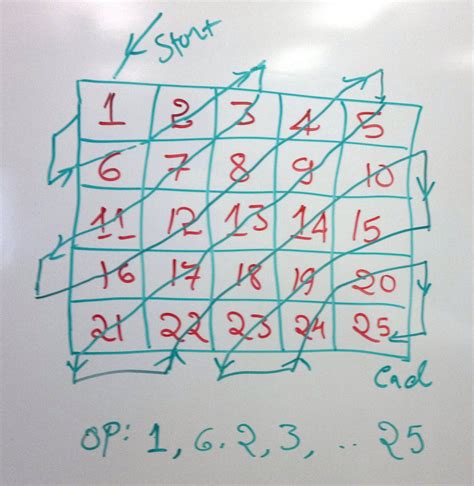 Start
1 2 3 4 5
6 7 8 9 10
11 12 13 14 15
16 17 18 19 20
21 22 23 24 25
End
OP: 1, 6. 2, 3, .. 25